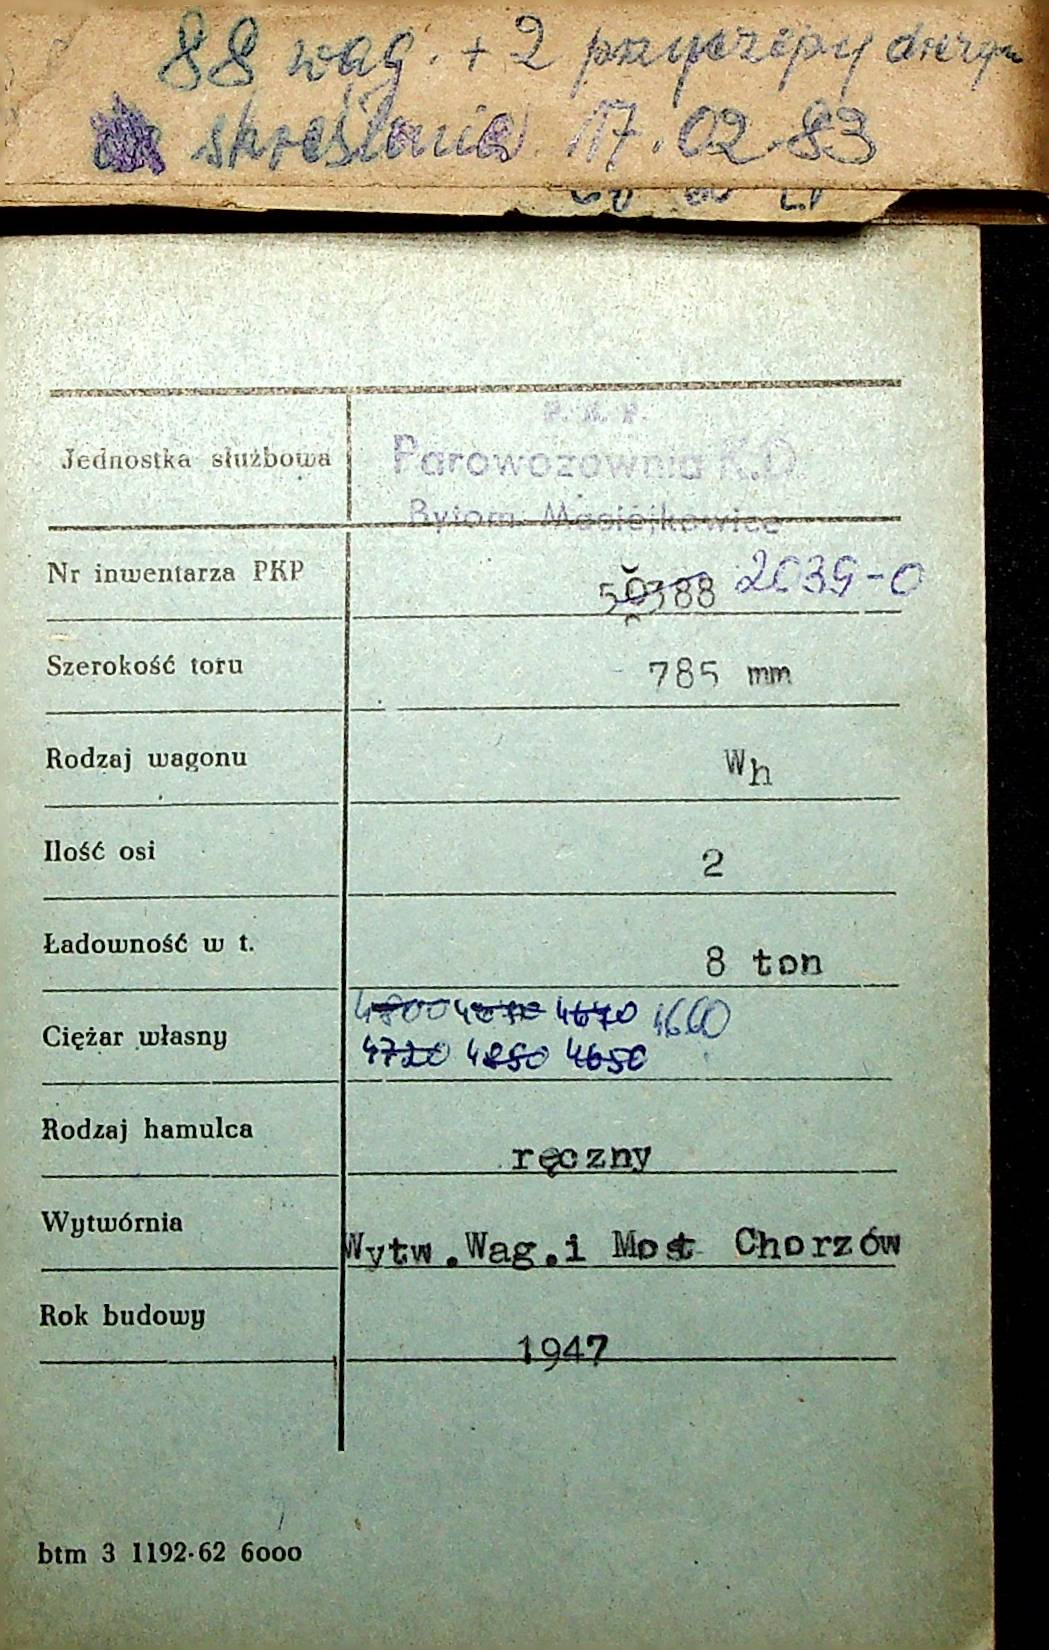 88 wag. + 2 przyczepy
skreślenie 17.02.83
Jednostka służbowa
P. K. P.
Parowozownia K.D.
Bytom Maciejkowice
Nr inwentarza PKP 50388 2039-0
Szerokość toru 785 mm
Rodzaj wagonu Wh
Ilość osi 2
Ładowność w t. 8 ton
4800 4670 4660
Ciężar własny
4720 4850 4650
Rodzaj hamulca ręczny
Wytwórnia Wytw.Wag.i Most Chorzów
Rok budowy 1947
btm 3 1192-62 6000